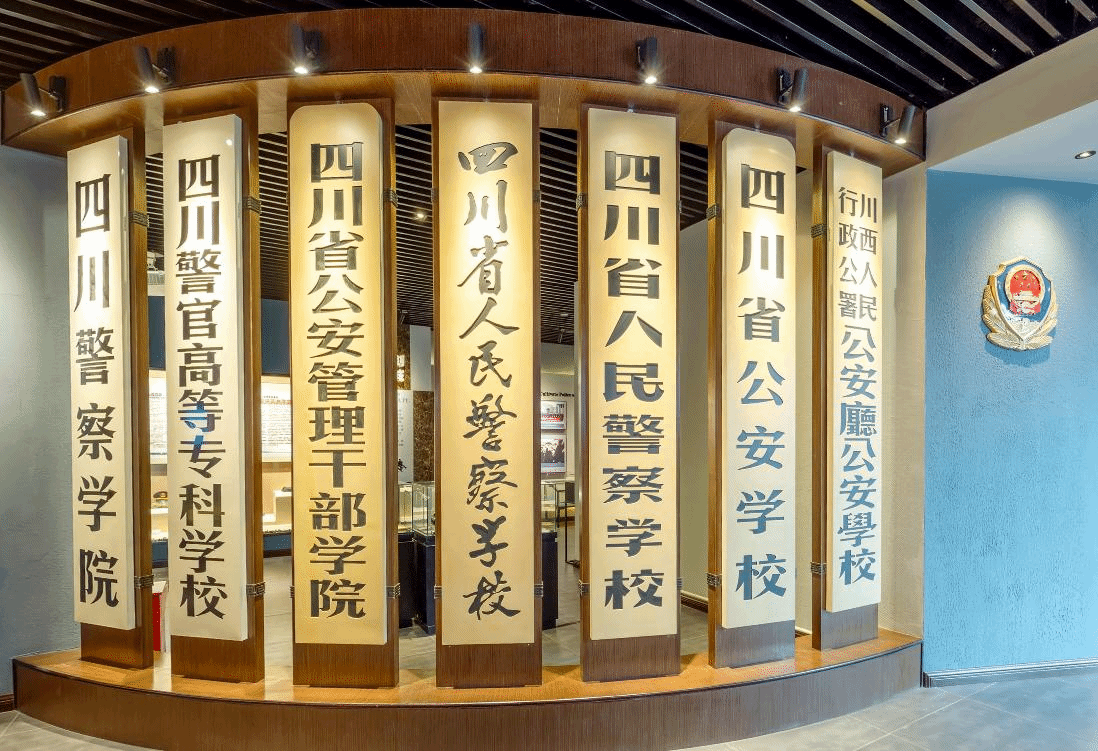 四川警察学院
四川警官高等专科学校
四川省公安管理干部学院
四川省人民警察学校
四川省人民警察学校
四川省公安学校
川西人民
行政公署
公安廳公安學校